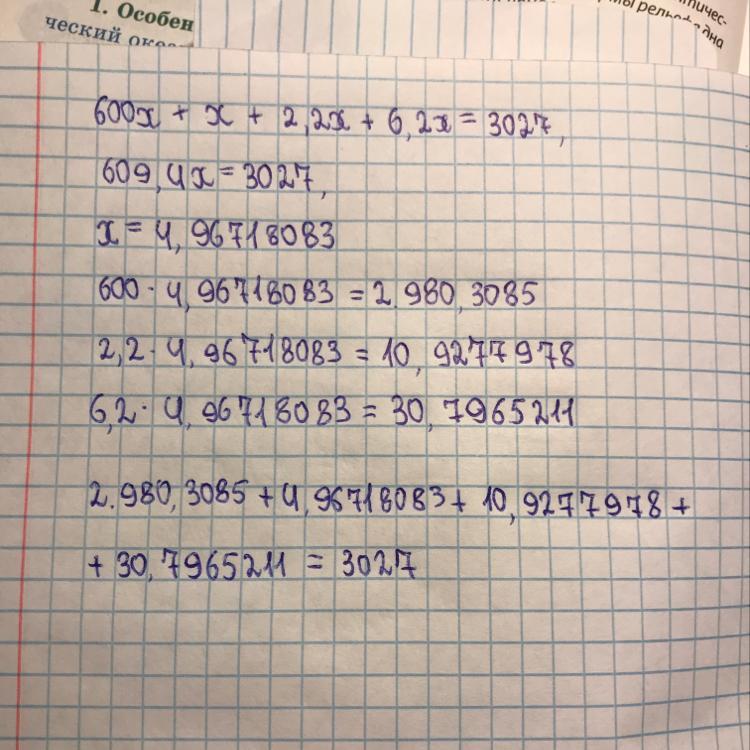 1. Особен
ческий оке
тичес-
мы рельефа дна
600x + x + 2,2x + 6,2x = 3027,
609,4x = 3027,
x = 4,96718083
600 · 4,96718083 = 2.980,3085
2,2 · 4,96718083 = 10,9277978
6,2 · 4,96718083 = 30,7965211
2.980,3085 + 4,96718083 + 10,9277978 +
+ 30,7965211 = 3027